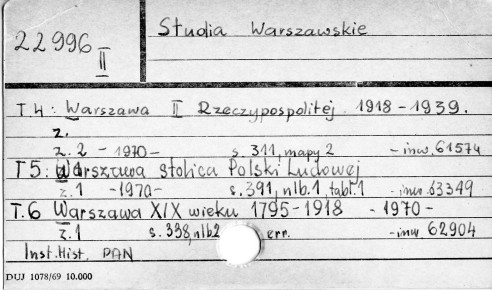 22996
II
Studia Warszawskie
T.4: Warszawa II Rzeczypospolitej 1918-1939.
z.
z. 2 - 1970 - s. 311, mapy 2 - inw. 61574
T5: Warszawa stolica Polski Ludowej
z.1 - 1970 - s. 391, nlb.1, tabl.1 - inw. 63349
T.6 Warszawa XIX wieku 1795-1918 - 1970 -
z.1 s. 338, nlb.2 err. - inw. 62904
Inst. Hist. PAN
DUJ 1078/69 10.000